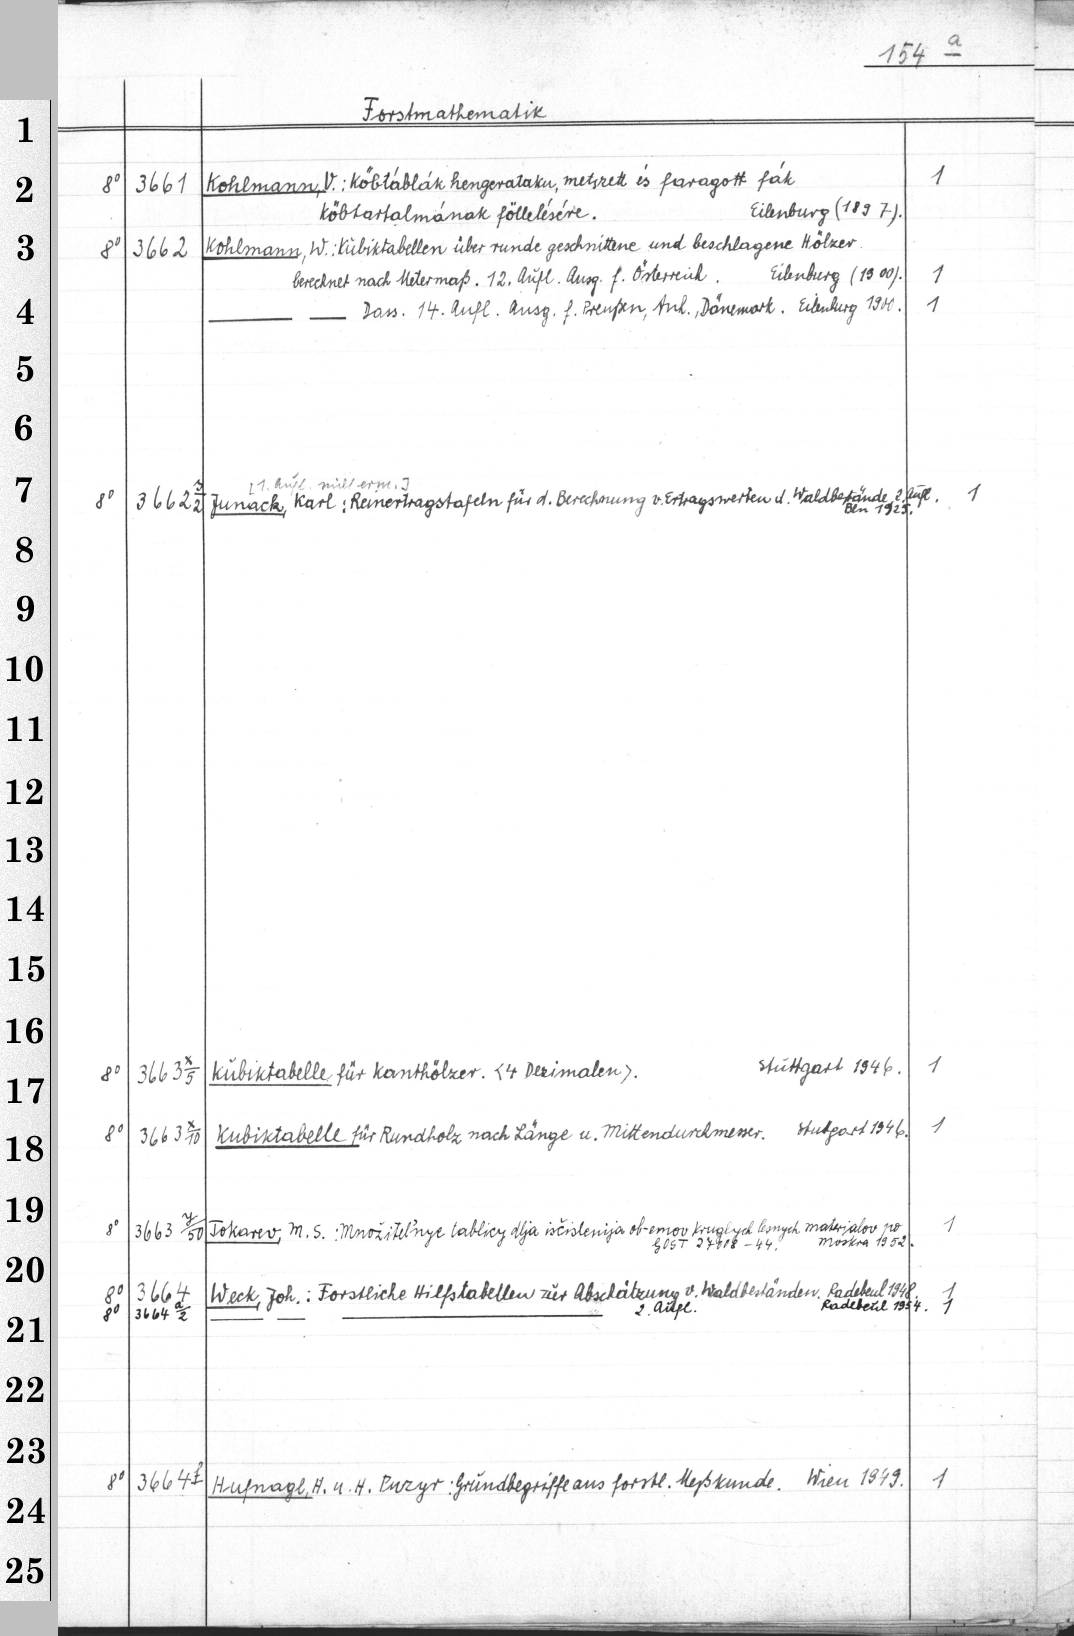 154 a
Forstmathematik
1
2
8° 3661 Kohlmann, V.: Köbtáblák hengerataku, metszett és faragott fák 1
köbtartalmának föllelésére. Eilenburg (1897).
3
8° 3662 Kohlmann, W.: Kubiktabellen über runde geschnittene und beschlagene Hölzer
berechnet nach Metermaß. 12. Aufl. Ausg. f. Österreich. Eilenburg (1900). 1
4
— — Dass. 14. Aufl. Ausg. f. Preußen, Anh., Dänemark. Eilenburg 1900. 1
5
6
7
[1. Aufl. nicht erm.]
8° 3662 3/2 Junack, Karl: Reinertragstafeln für d. Berechnung v. Ertragswerten d. Waldbestände 2. Aufl. 1
Bln 1925.
8
9
10
11
12
13
14
15
16
17
8° 3663 x/5 Kubiktabelle für Kanthölzer. <4 Dezimalen>. Stuttgart 1946. 1
18
8° 3663 x/10 Kubiktabelle für Rundholz nach Länge u. Mittendurchmesser. Stuttgart 1946. 1
19
8° 3663 y/50 Tokarev, M. S.: Množitel'nye tablicy dlja isčislenija ob-emov kruglych lesnych materialov po 1
GOST 2708-44. Moskva 1952.
20
8° 3664 Weck, Joh.: Forstliche Hilfstabellen zur Abschätzung v. Waldbeständen. Radebeul 1948. 1
8° 3664 a/2 — — — 2. Aufl. Radebeul 1954. 1
21
22
23
24
8° 3664 f Hufnagl, H. u. H. Puzyr: Grundbegriffe aus forstl. Meßkunde. Wien 1949. 1
25